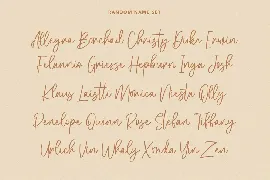 RANDOM NAME SET
Allegra Borchad Christy Duke Erwin
Felannio Griesse Hepburn Inga Josh
Klaus Laistti Monica Niesta Olly
Penelipe Quenn Rose Stefan Tiffany
Urlick Vin Whaly Xonda Yin Zen